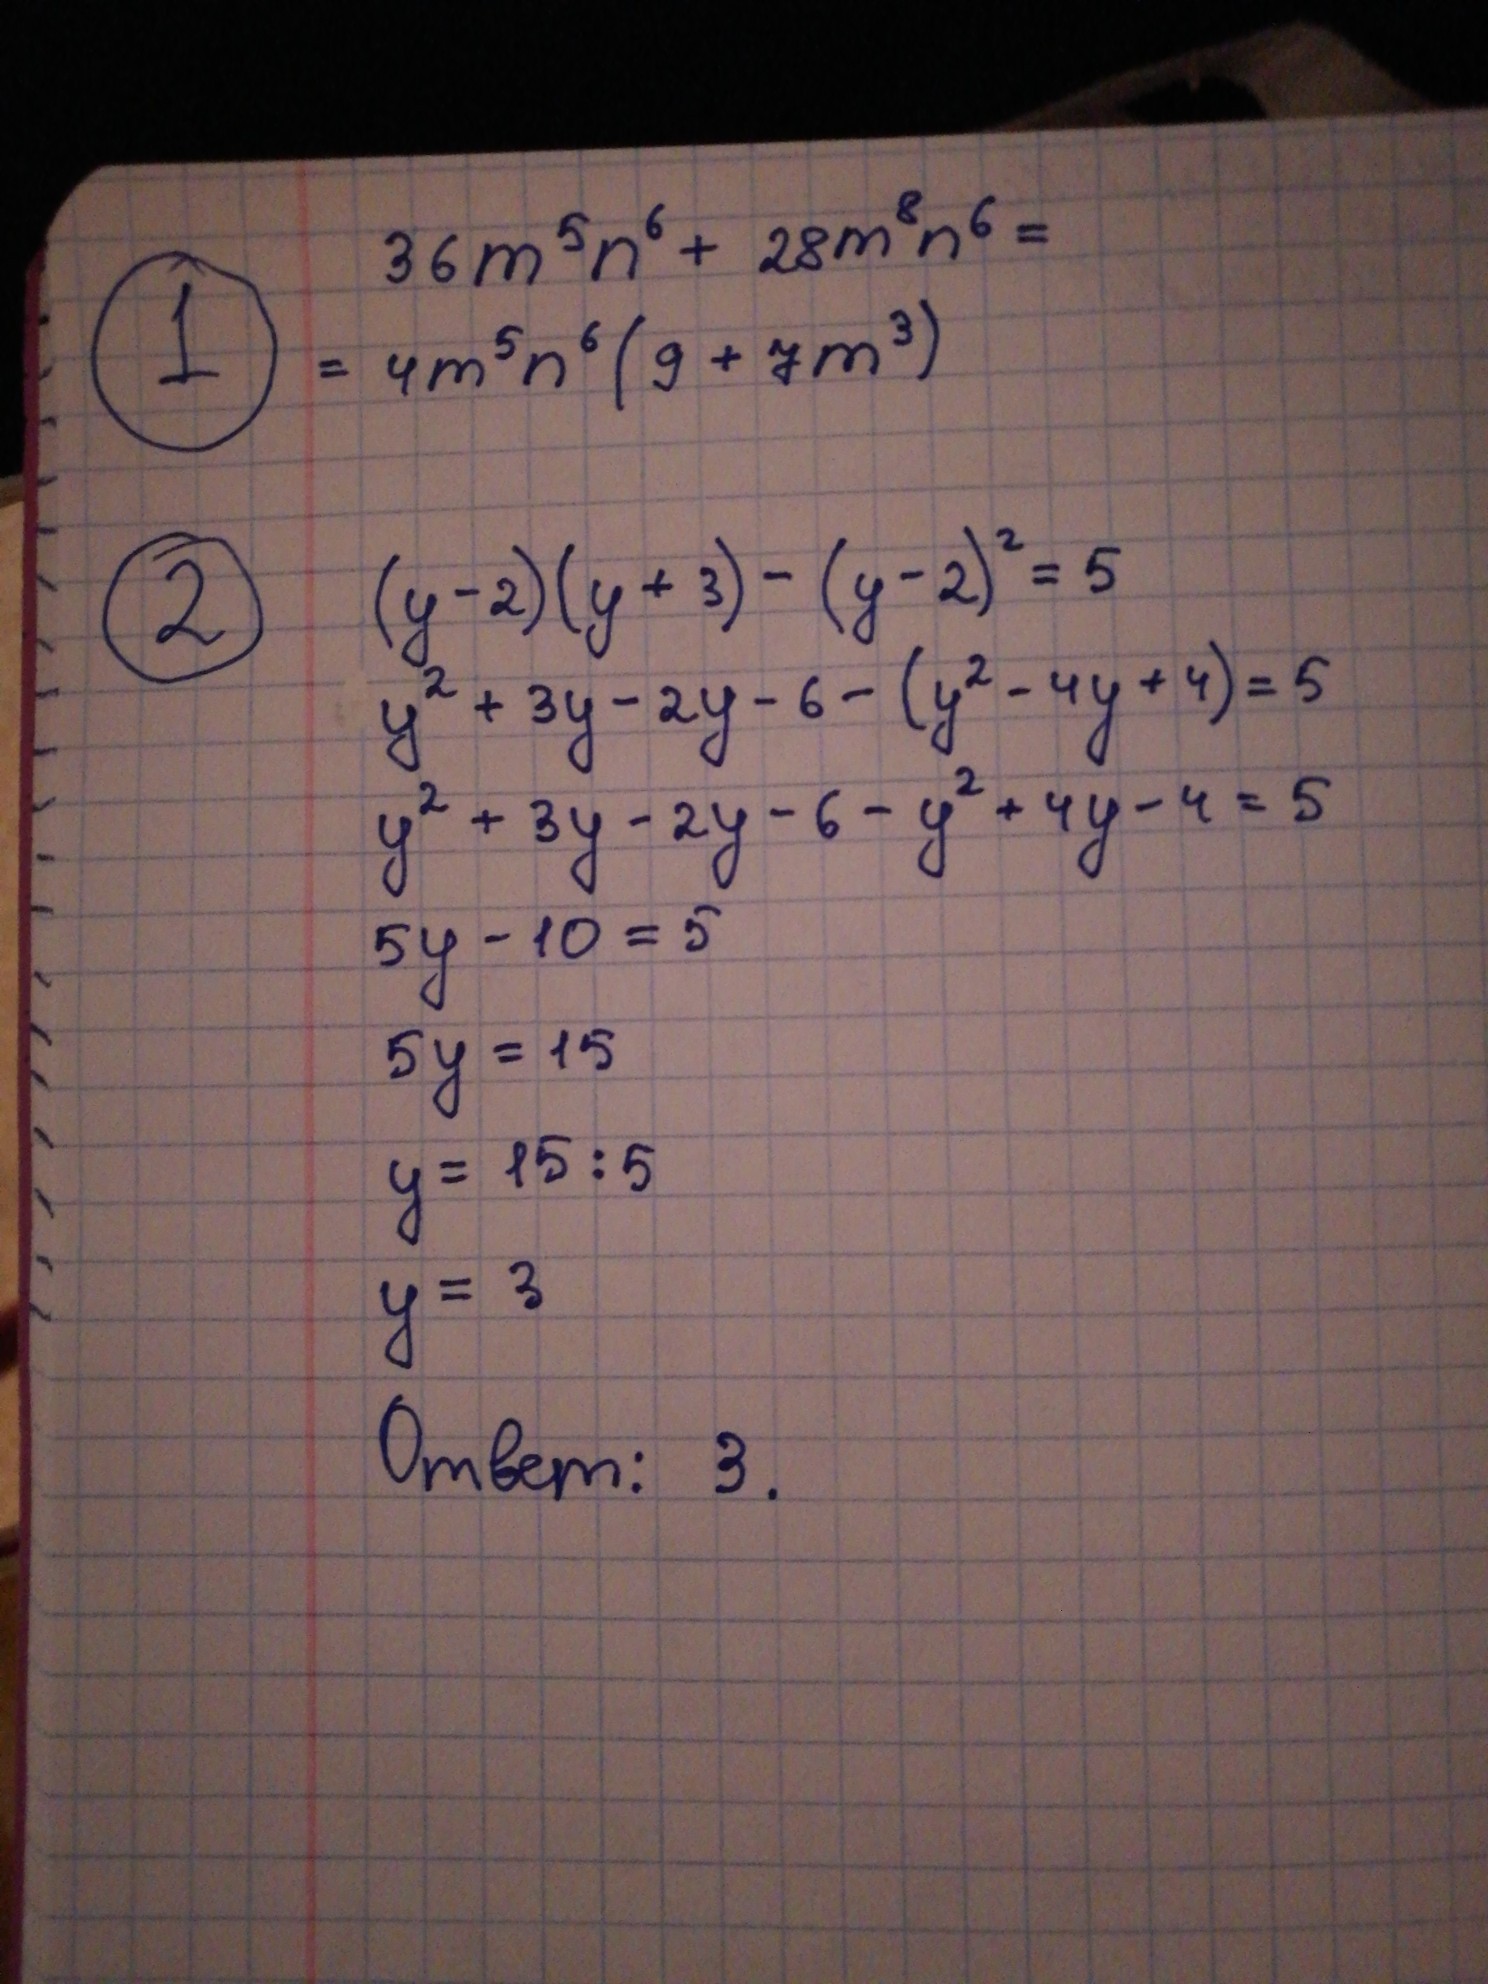 1
36m⁵n⁶ + 28m⁸n⁶ =
= 4m⁵n⁶(9 + 7m³)
2
(y - 2)(y + 3) - (y - 2)² = 5
y² + 3y - 2y - 6 - (y² - 4y + 4) = 5
y² + 3y - 2y - 6 - y² + 4y - 4 = 5
5y - 10 = 5
5y = 15
y = 15 : 5
y = 3
Ответ: 3.